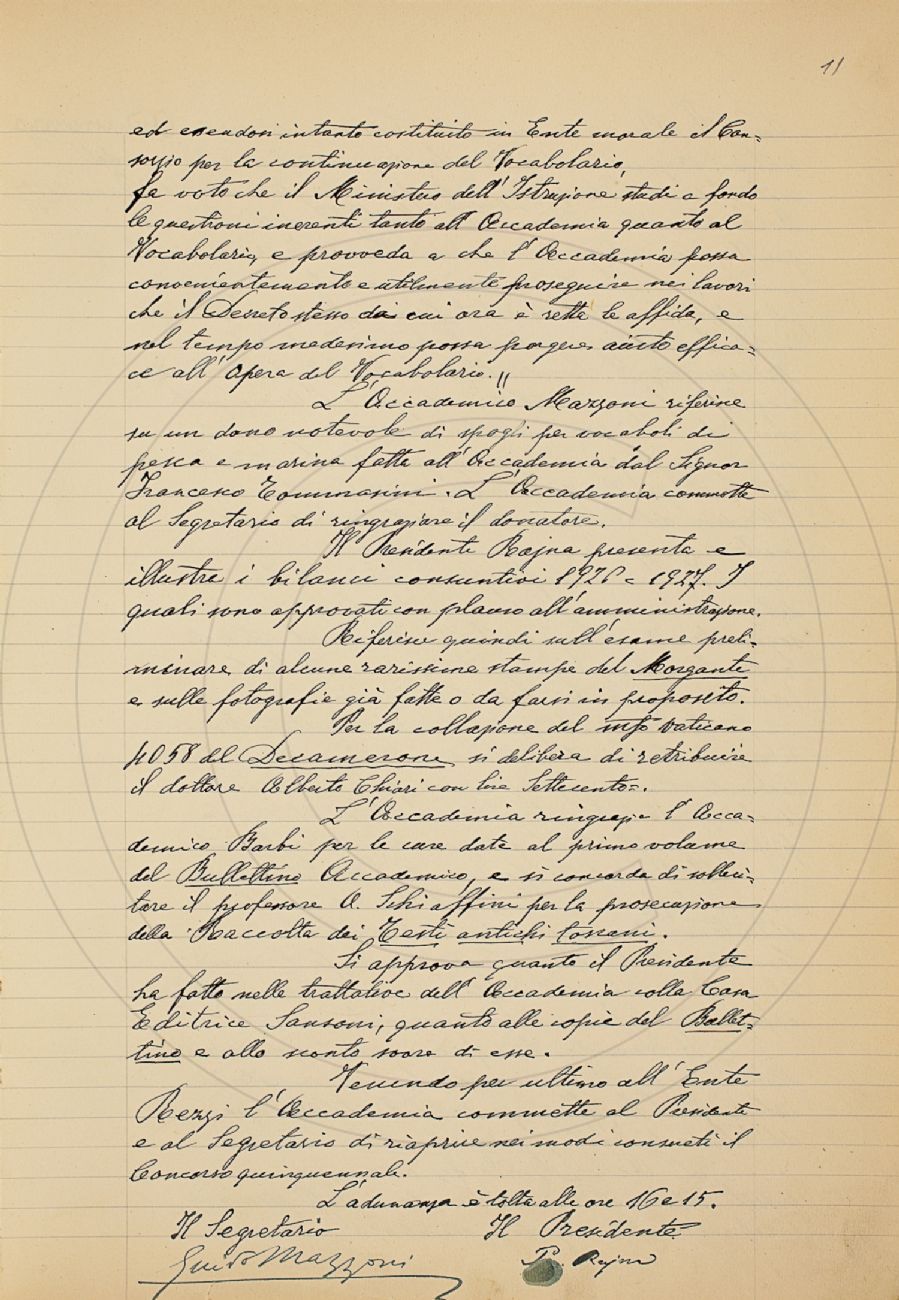 11
ed essendosi intanto costituito in Ente morale il Con=
sorzio per la continuazione del Vocabolario,
fa voto che il Ministero dell'Istruzione studi a fondo
le questioni inerenti tanto all'Accademia quanto al
Vocabolario, e provveda a che l'Accademia possa
convenientemente e utilmente proseguire nei lavori
che il Decreto stesso da cui ora è retta le affida, e
nel tempo medesimo possa porgere aiuto effica=
ce all'opera del Vocabolario."
L'Accademico Mazzoni riferisce
su un dono notevole di spogli per vocaboli di
pesca e marina fatta all'Accademia dal Signor
Francesco Tommasini. L'Accademia commette
al Segretario di ringraziare il donatore.
Il Presidente Rajna presenta e
illustra i bilanci consuntivi 1926 e 1927. I
quali sono approvati con plauso all'amministrazione.
Riferisce quindi sull'esame preli=
minare di alcune rarissime stampe del Morgante
e sulle fotografie già fatte o da farsi in proposito.
Per la collazione del mso Vaticano
4058 del Decamerone si delibera di retribuire
il dottore Alberto Chiari con lire Settecento=.
L'Accademia ringrazia l'Acca=
demico Barbi per le cure date al primo volume
del Bullettino Accademico, e si concorda di solleci=
tare il professore A. Schiaffini per la prosecuzione
della Raccolta dei Testi antichi toscani.
Si approva quanto il Presidente
ha fatto nelle trattative dell'Accademia colla Casa
Editrice Sansoni, quanto alle copie del Bullet=
tino e allo sconto sovra di esse.
Venendo per ultimo all'Ente
Rezzi l'Accademia commette al Presidente
e al Segretario di riaprire nei modi consueti il
Concorso quinquennale.
L'adunanza è tolta alle ore 16 e 15.
Il Segretario Il Presidente
Guido Mazzoni P. Rajna